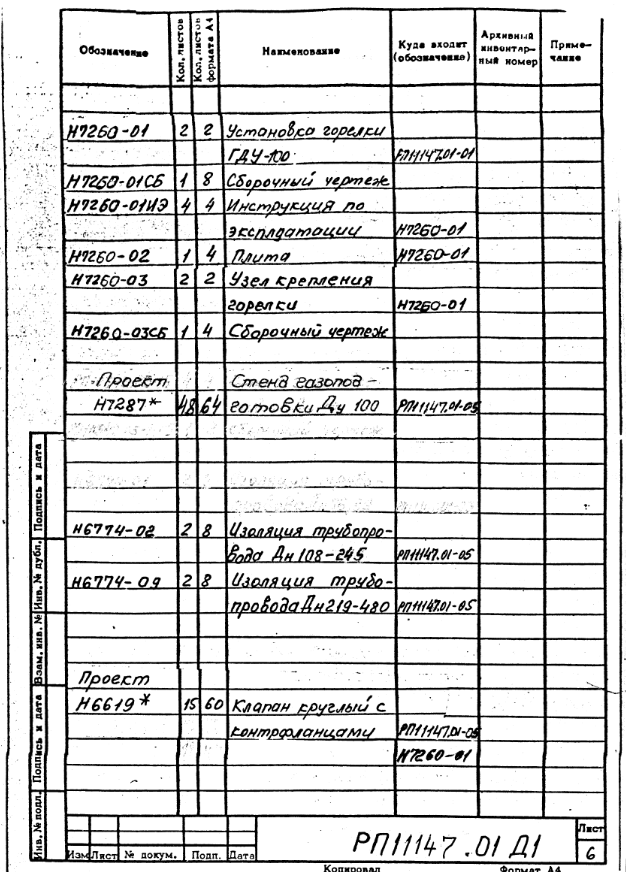 Обозначение Кол. листов Кол. листов формата А4 Наименование Куда входит (обозначение) Архивный инвентарный номер Примечание
Н7260-01 2 2 Установка горелки
ГДУ-100 РП11147.01-01
Н7260-01СБ 1 8 Сборочный чертеж
Н7260-01ИЭ 4 4 Инструкция по
эксплдатации Н7260-01
Н7260-02 1 4 Плита Н7260-01
Н7260-03 2 2 Узел крепления
горелки Н7260-01
Н7260-03СБ 1 4 Сборочный чертеж
Проект Стенд газопод-
Н7287* 48 64 готовки Ду 100 РП11147.01-05
Н6774-02 2 8 Изоляция трубопро-
вода Дн 108-245 РП11147.01-05
Н6774-09 2 8 Изоляция трубо-
провода Дн219-480 РП11147.01-05
Проект
Н6619* 15 60 Клапан круглый с
контрфланцами РП11147.01-05
Н7260-01
Инв. № подл. Подпись и дата Взам. инв. № Инв. № дубл. Подпись и дата
РП11147.01 Д1
Лист
6
Изм Лист № докум. Подп. Дата
Копировал Формат А4